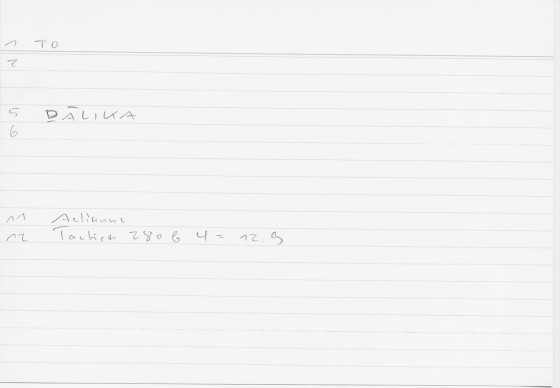 1 TO
2
5 ḎĀLIKA
6
11 Aelianus
12 Tactica 280 b 4 = 12.9